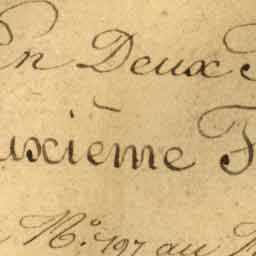 En Deux
uxième
N.º 197 au